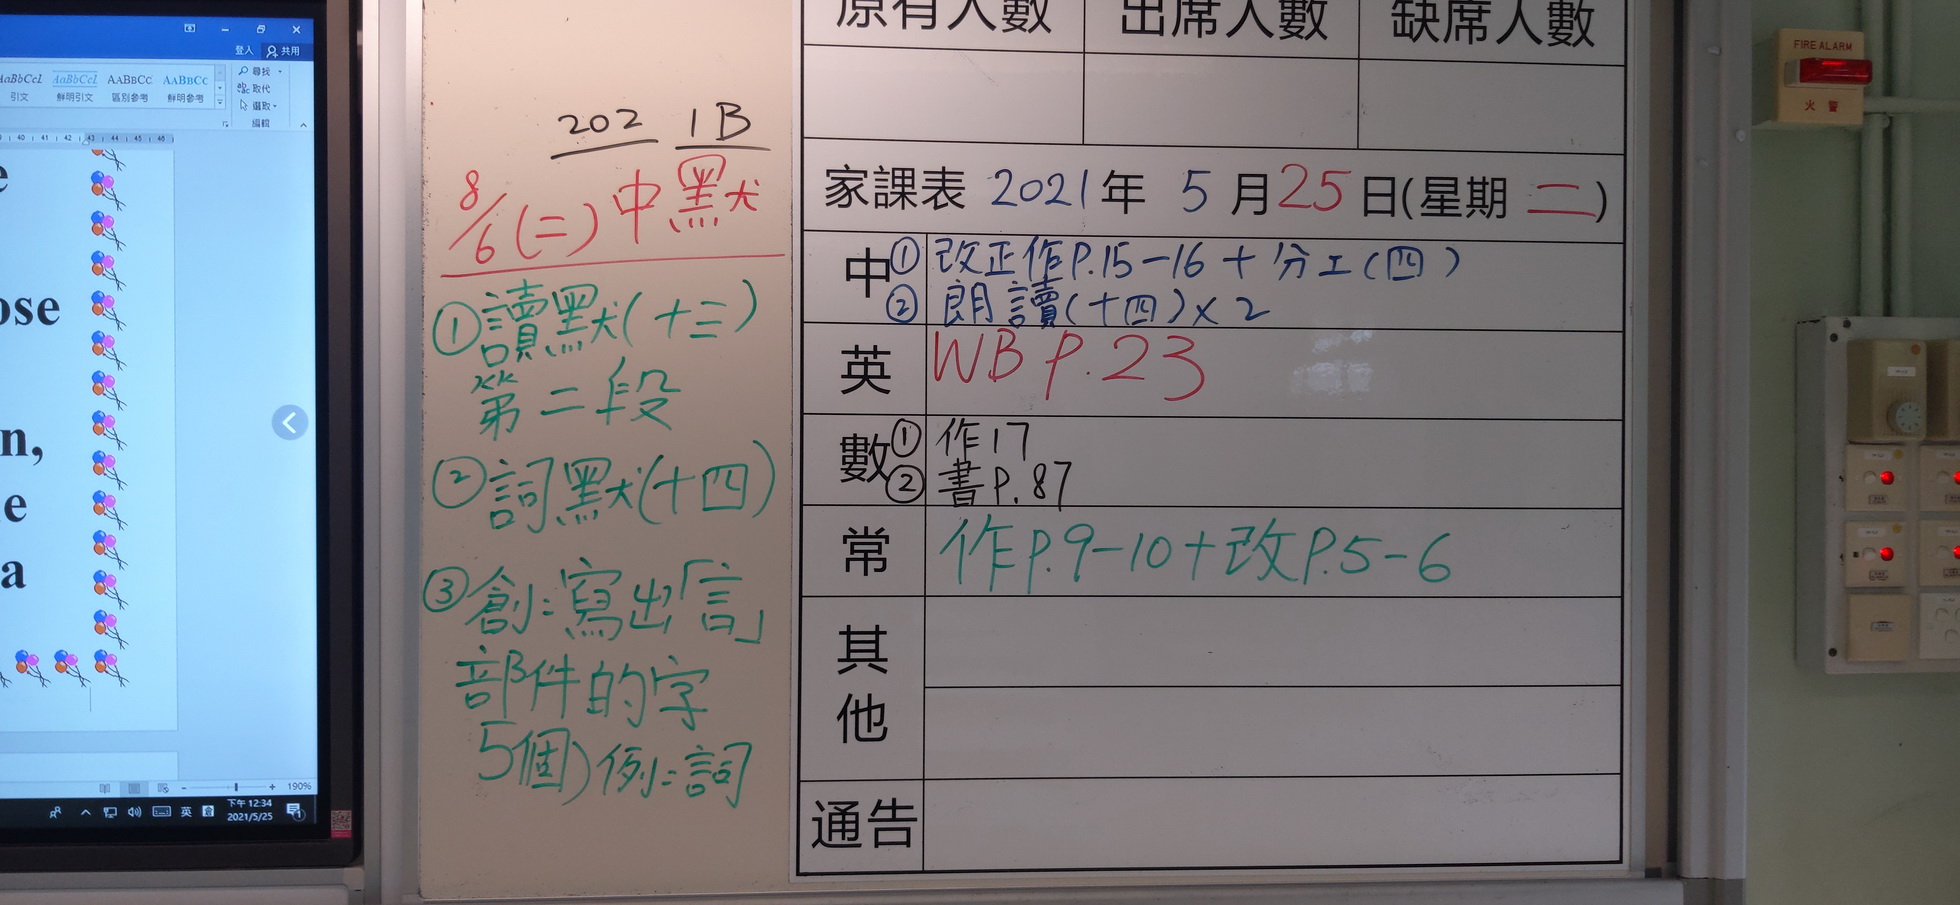 登入 共用
AaBbCcL AaBbCcL AABBCC AABBCC
引文 鮮明引文 區別參考 鮮明參考
尋找
取代
選取
編輯
40 41 42 43 44 45 46
e
ose
n,
e
a
190%
英
下午 12:34
2021/5/25
202 1B
8/6(二)中默
①讀默(十三)
第二段
②詞默(十四)
③創:寫出「言」
部件的字
5個)例:詞
原有人數 出席人數 缺席人數
家課表 2021年 5月25日(星期二)
中 ①改正作P.15-16+分工(四)
②朗讀(十四)×2
英 WB P.23
數 ①作17
②書P.87
常 作P.9-10+改P.5-6
其他
通告
FIRE ALARM
火警